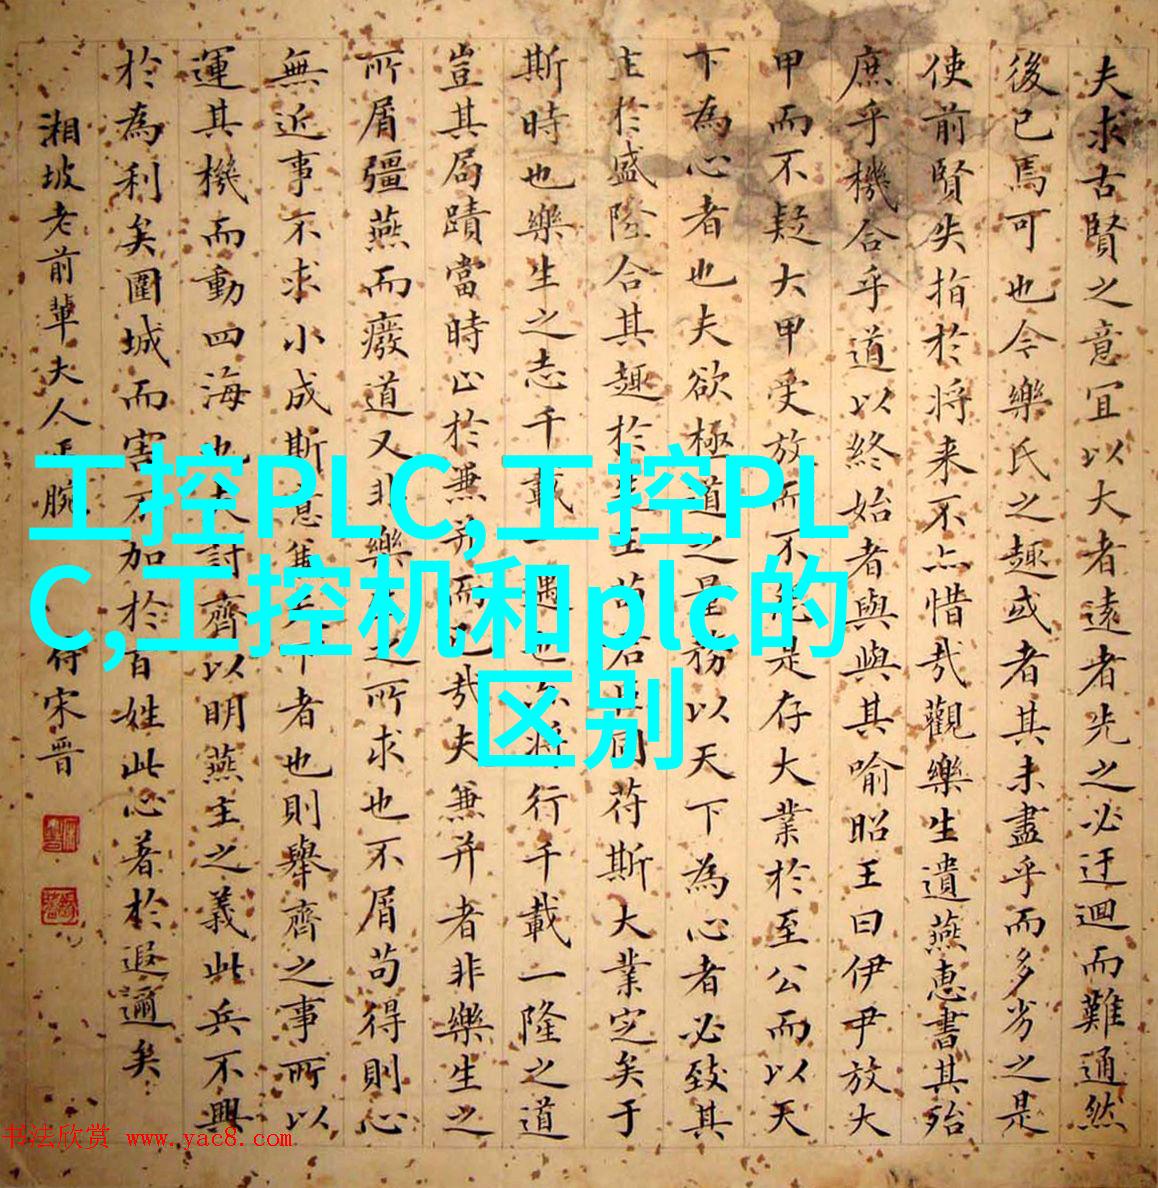 夫求古賢之意宜以大者遠者先之必迂迴而難通然
後已焉可也今樂氏之趣或者其未盡乎而多劣之是
使前賢失指於将来不亦惜哉觀樂生遺燕惠書其殆
庶乎機合乎道以終始者與與其喻昭王曰伊尹放大
甲而不疑大甲受放而不怨是存大業於至公而以天
下為心者也夫欲極道之量務以天下為心者必致其
主於盛隆合其趣於先王苟君臣同苻斯大業定矣于
斯時也樂生之志千載一遇也亦将行千載一隆之道
豈其局蹟當時止於兼并而已哉夫兼并者非樂生之
所屑彊燕而廢道又非樂生之所求也不屑苟得則心
無近事不求小成斯意兼天下者也則舉齊之事所以
運其機而動四海也夫討齊以明燕主之義此兵不興
於為利矣圍城而害不加於百姓此心著於遐邇矣
湘坡老前輩夫人正腕 侍宋晋
工控PLC,工控PL
C,工控机和plc的
区别
书法欣赏 www.yac8.com